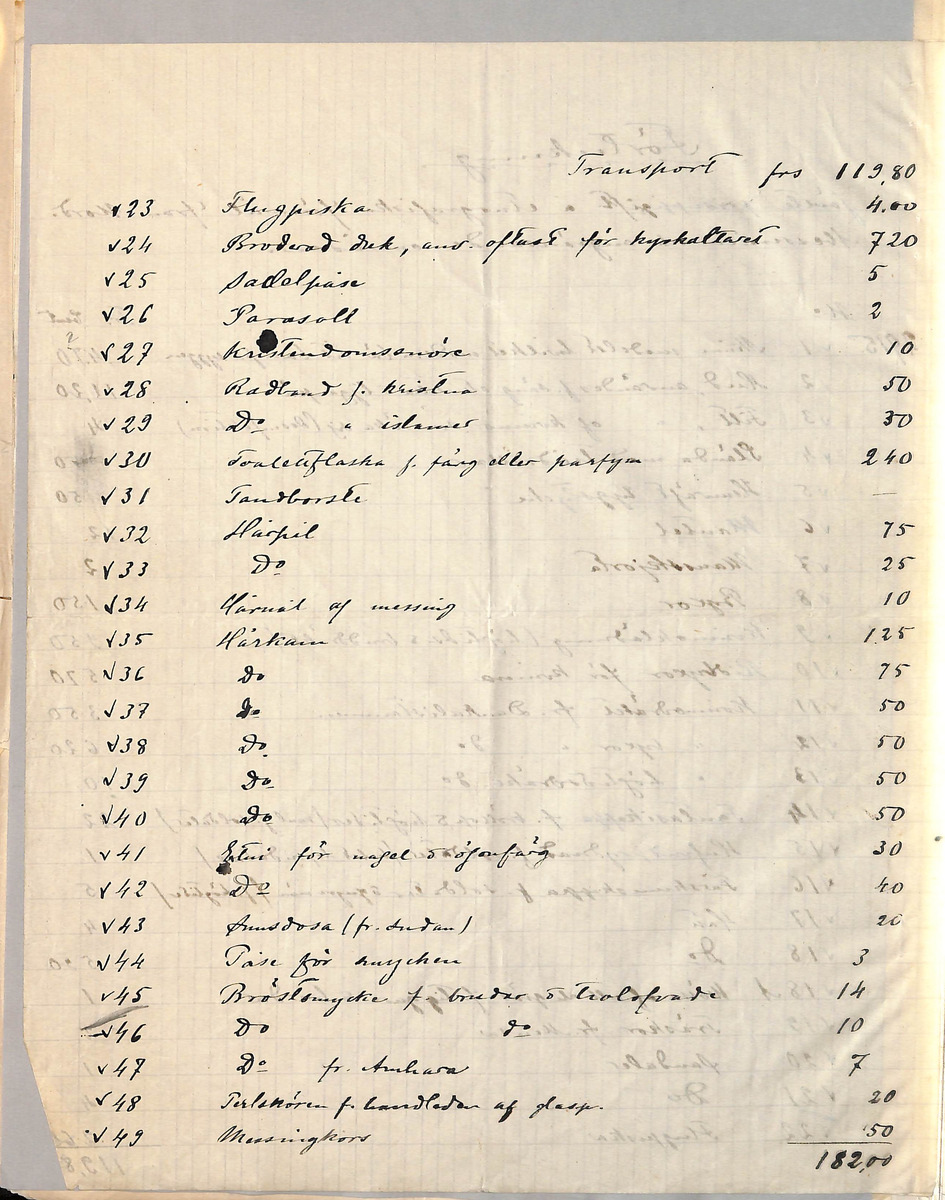 Transport frs 119,80
√23 Flugpiska 4.00
√24 Broderad duk, anv. oftast för kyskaltaret 720
√25 Sadelpåse 5
√26 Parasoll 2
√27 Kristendomssnöre 10
√28 Radband f. kristna 50
√29 Do " islamer 30
√30 Toalettflaska f. färg eller parfym 240
√31 Tandborste —
√32 Hårpil 75
√33 Do 25
√34 Hårnål af messing 10
√35 Hårkam 125
√36 Do 75
√37 Do 50
√38 Do 50
√39 Do 50
√40 Do 50
√41 Etui för nagel o ögonfärg 30
√42 Do 40
√43 Snusdosa (fr. Sudan) 20
√44 Påse för smycken 3
√45 Bröstsmycke f. brudar o trolofvade 14
√46 Do do 10
√47 Do fr. Amhara 7
√48 Perlsnören f. handleden af glasp. 20
√49 Messingkors 50
182,00